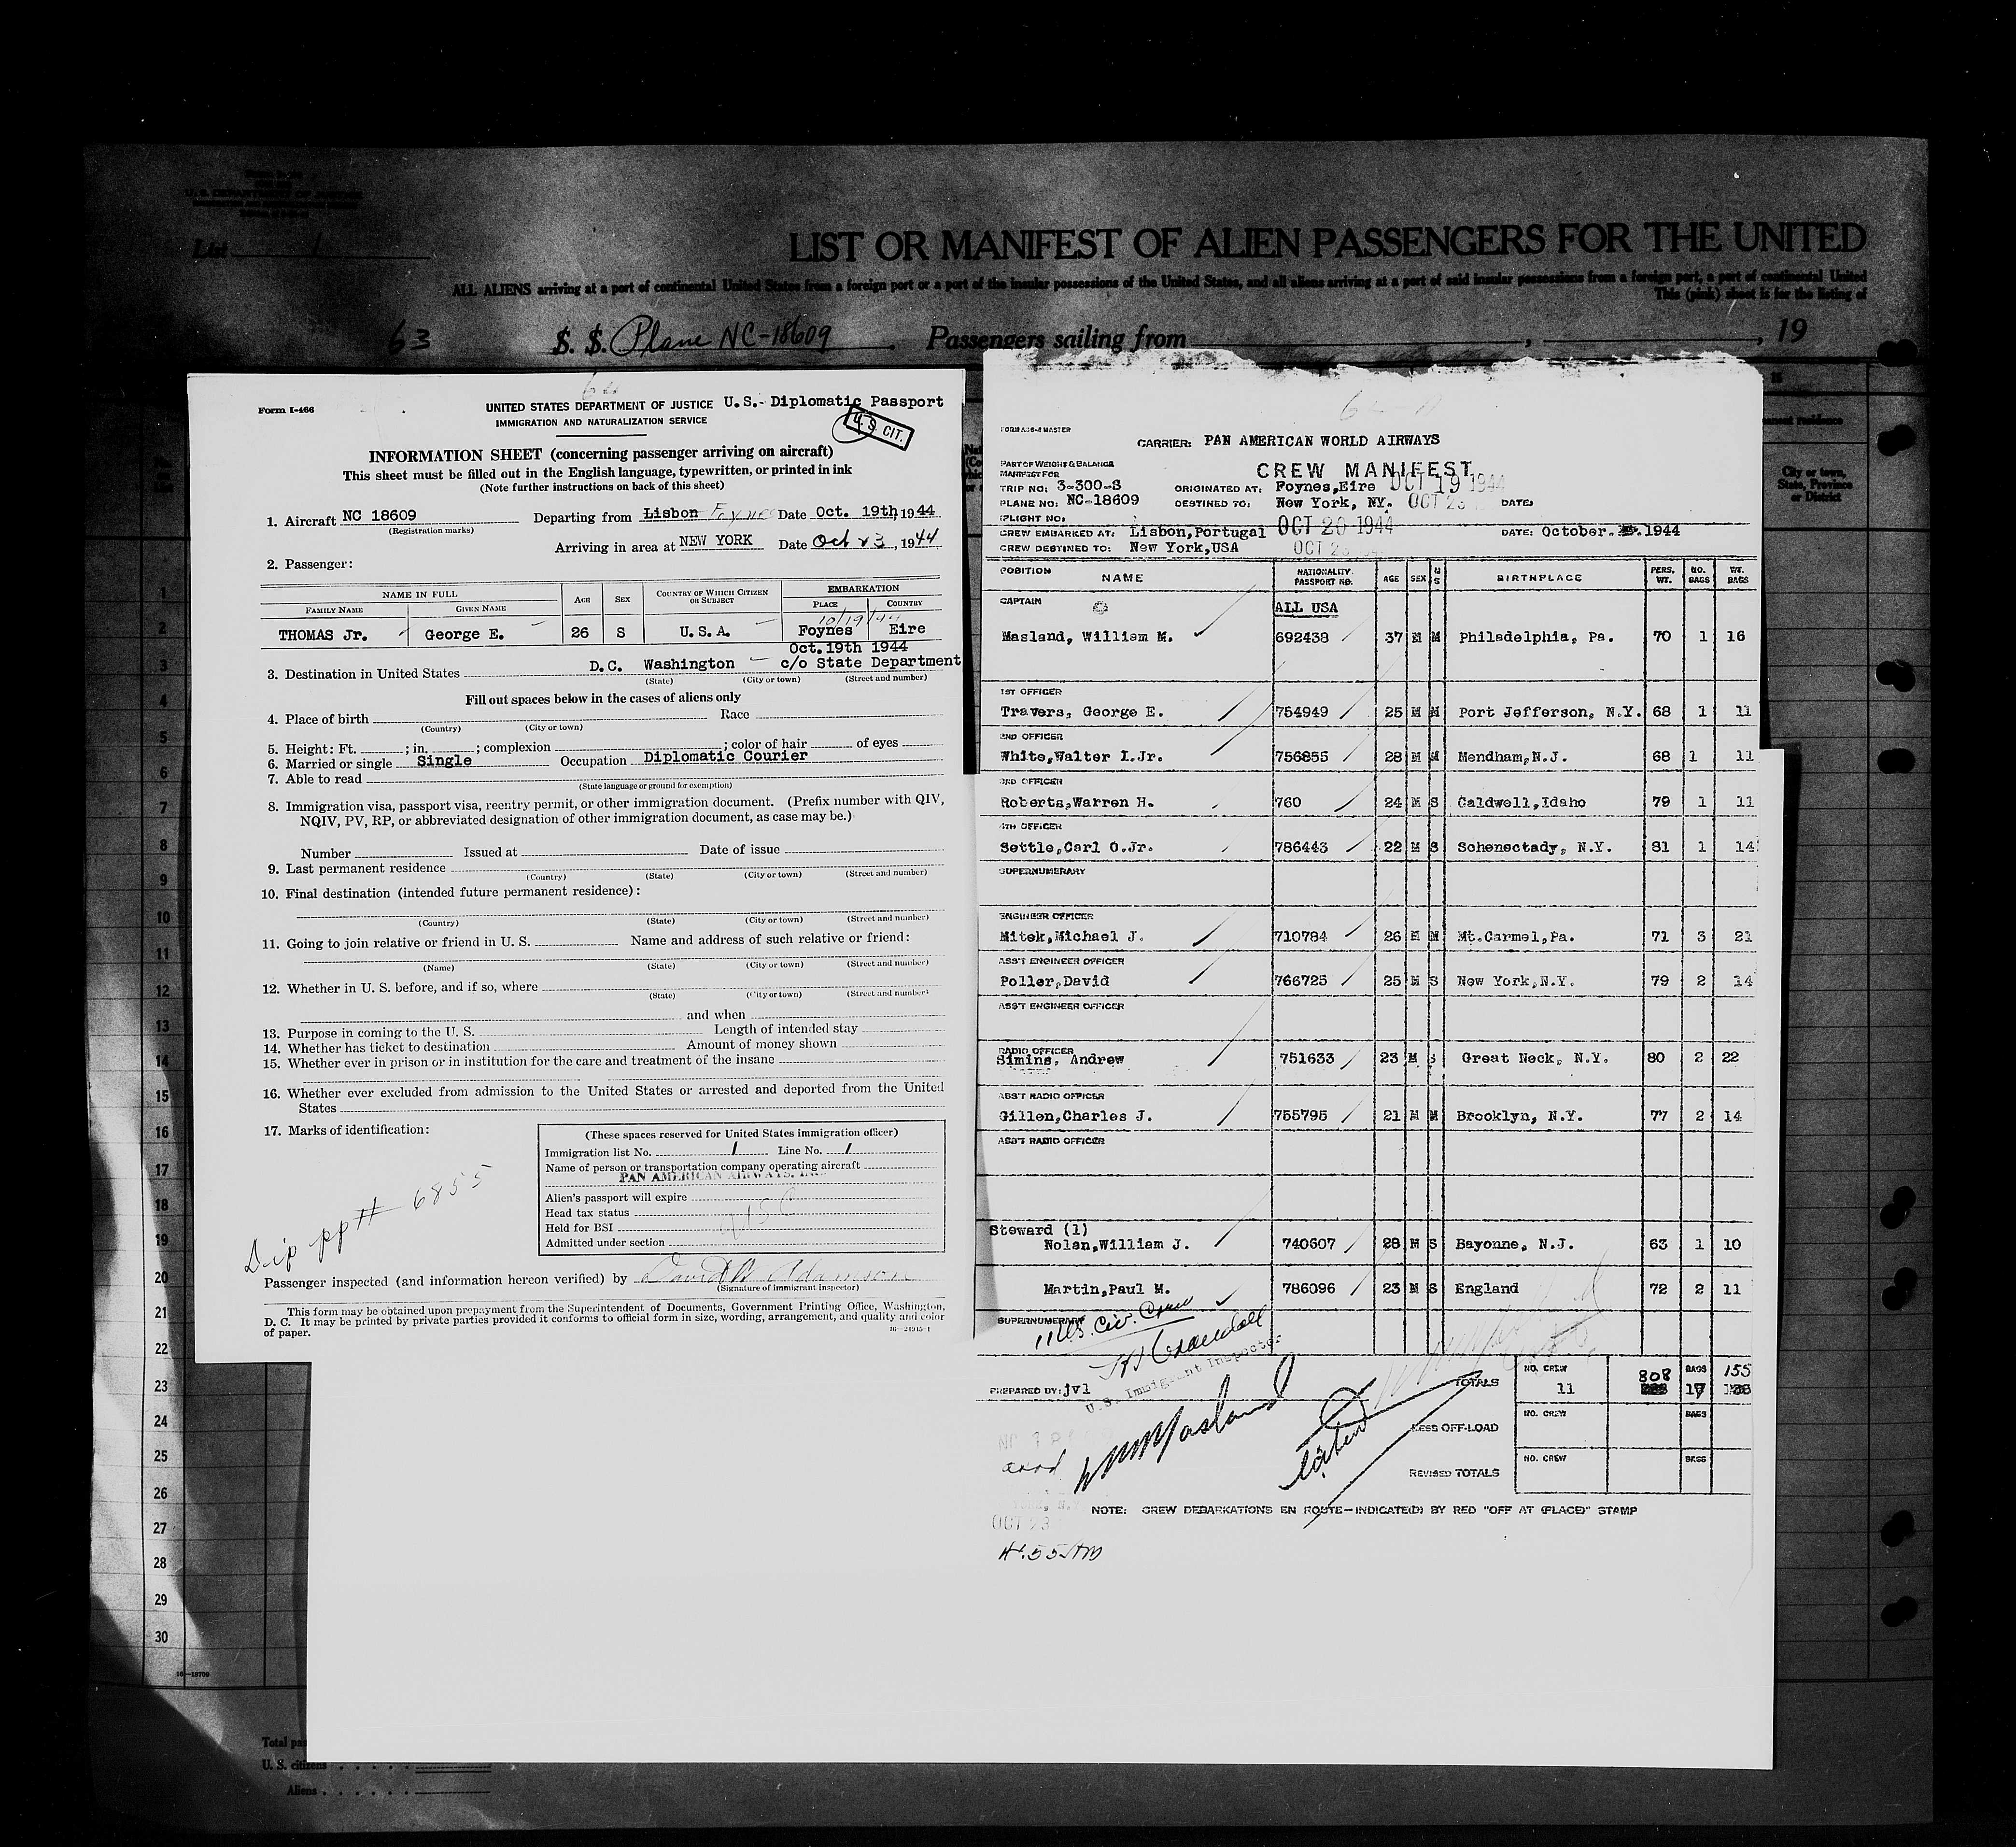 LIST OR MANIFEST OF ALIEN PASSENGERS FOR THE UNITED
List 1
ALL ALIENS arriving at a port of continental United States from a foreign port or a port of the insular possessions of the United States, and all aliens arriving at a port of said insular possessions from a foreign port, a port of continental United
This (pink) sheet is for the listing of
63 S. S. Plane NC-18609 Passengers sailing from , , 19
Form I-466
UNITED STATES DEPARTMENT OF JUSTICE U.S. Diplomatic Passport
IMMIGRATION AND NATURALIZATION SERVICE
U. S. CIT.
INFORMATION SHEET (concerning passenger arriving on aircraft)
This sheet must be filled out in the English language, typewritten, or printed in ink
(Note further instructions on back of this sheet)
1. Aircraft NC 18609 Departing from Lisbon Foynes Date Oct. 19th, 1944
(Registration marks)
Arriving in area at NEW YORK Date Oct 23, 1944
2. Passenger:
NAME IN FULL AGE SEX COUNTRY OF WHICH CITIZEN OR SUBJECT EMBARKATION
FAMILY NAME GIVEN NAME PLACE COUNTRY
10/19/44
THOMAS Jr. George E. 26 S U.S.A. Foynes Eire
Oct.19th 1944
3. Destination in United States D.C. Washington c/o State Department
(State) (City or town) (Street and number)
Fill out spaces below in the cases of aliens only
4. Place of birth Race
(Country) (City or town)
5. Height: Ft. ; in. ; complexion ; color of hair of eyes
6. Married or single Single Occupation Diplomatic Courier
7. Able to read
(State language or ground for exemption)
8. Immigration visa, passport visa, reentry permit, or other immigration document. (Prefix number with QIV,
NQIV, PV, RP, or abbreviated designation of other immigration document, as case may be.)
Number Issued at Date of issue
9. Last permanent residence
(Country) (State) (City or town) (Street and number)
10. Final destination (intended future permanent residence):
(Country) (State) (City or town) (Street and number)
11. Going to join relative or friend in U. S. Name and address of such relative or friend:
(Name) (State) (City or town) (Street and number)
12. Whether in U. S. before, and if so, where
(State) (City or town) (Street and number)
and when
13. Purpose in coming to the U. S. Length of intended stay
14. Whether has ticket to destination Amount of money shown
15. Whether ever in prison or in institution for the care and treatment of the insane
16. Whether ever excluded from admission to the United States or arrested and deported from the United
States
17. Marks of identification:
(These spaces reserved for United States immigration officer)
Immigration list No. 1 Line No. 1
Name of person or transportation company operating aircraft
PAN AMERICAN AIRWAYS, INC.
Alien's passport will expire
Head tax status
Held for BSI
Admitted under section
Dip pp# 6855
Passenger inspected (and information hereon verified) by David W Adamson
(Signature of immigrant inspector)
This form may be obtained upon prepayment from the Superintendent of Documents, Government Printing Office, Washington,
D. C. It may be printed by private parties provided it conforms to official form in size, wording, arrangement, and quality and color
of paper. 16—24945-1
CARRIER: PAN AMERICAN WORLD AIRWAYS
PART OF WEIGHT & BALANCE
MANIFEST FOR
CREW MANIFEST
TRIP NO: 3-300-S ORIGINATED AT: Foynes,Eire OCT 19 1944
PLANE NO: NC-18609 DESTINED TO: New York, NY. OCT 23 DATE:
FLIGHT NO.
CREW EMBARKED AT: Lisbon,Portugal OCT 20 1944 DATE: October. .1944
CREW DESTINED TO: New York,USA OCT 23
POSITION NAME NATIONALITY PASSPORT NO. AGE SEX M S BIRTHPLACE PERS. WT. NO. BAGS WT. BAGS
CAPTAIN ALL USA
Masland, William M. 692438 37 M M Philadelphia, Pa. 70 1 16
1ST OFFICER
Travers, George E. 754949 25 M M Port Jefferson, N.Y. 68 1 11
2ND OFFICER
White,Walter I.Jr. 756855 28 M M Mendham,N.J. 68 1 11
3RD OFFICER
Roberts,Warren H. 760 24 M S Caldwell,Idaho 79 1 11
4TH OFFICER
Settle,Carl O.Jr. 786443 22 M S Schenectady, N.Y. 81 1 14
SUPERNUMERARY
ENGINEER OFFICER
Mitek,Michael J. 710784 26 M M Mt.Carmel,Pa. 71 3 21
ASS'T ENGINEER OFFICER
Poller,David 766725 25 M S New York,N.Y. 79 2 14
ASS'T ENGINEER OFFICER
RADIO OFFICER
Simins, Andrew 751633 23 M S Great Neck, N.Y. 80 2 22
ASS'T RADIO OFFICER
Gillen,Charles J. 755795 21 M M Brooklyn, N.Y. 77 2 14
ASS'T RADIO OFFICER
Steward (1)
Nolan,William J. 740607 28 M S Bayonne, N.J. 63 1 10
Martin,Paul M. 786096 23 M S England 72 2 11
SUPERNUMERARY
11 US. Civ. Crew
U.S. Immigrant Inspector
PREPARED BY: jvl TOTALS NO. CREW 11 808 BAGS 17 155
LESS OFF-LOAD NO. CREW BAGS
REVISED TOTALS NO. CREW BAGS
WMMasland
NOTE: CREW DEBARKATIONS EN ROUTE—INDICATE(D) BY RED "OFF AT (PLACE)" STAMP
OCT 23
4:55AM
City or town,
State, Province
or District
1
2
3
4
5
6
7
8
9
10
11
12
13
14
15
16
17
18
19
20
21
22
23
24
25
26
27
28
29
30
16—19709
Total pas
U. S. citizens
Aliens